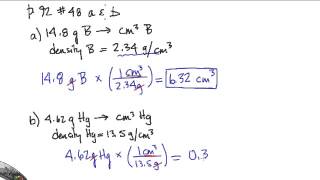 p. 92 # 48 a & b
a) 14.8 g B → cm³ B
density B = 2.34 g/cm³
14.8 g B × (1 cm³ / 2.34 g) = 6.32 cm³
b) 4.62 g Hg → cm³ Hg
density Hg = 13.5 g/cm³
4.62 g Hg × (1 cm³ / 13.5 g) = 0.3